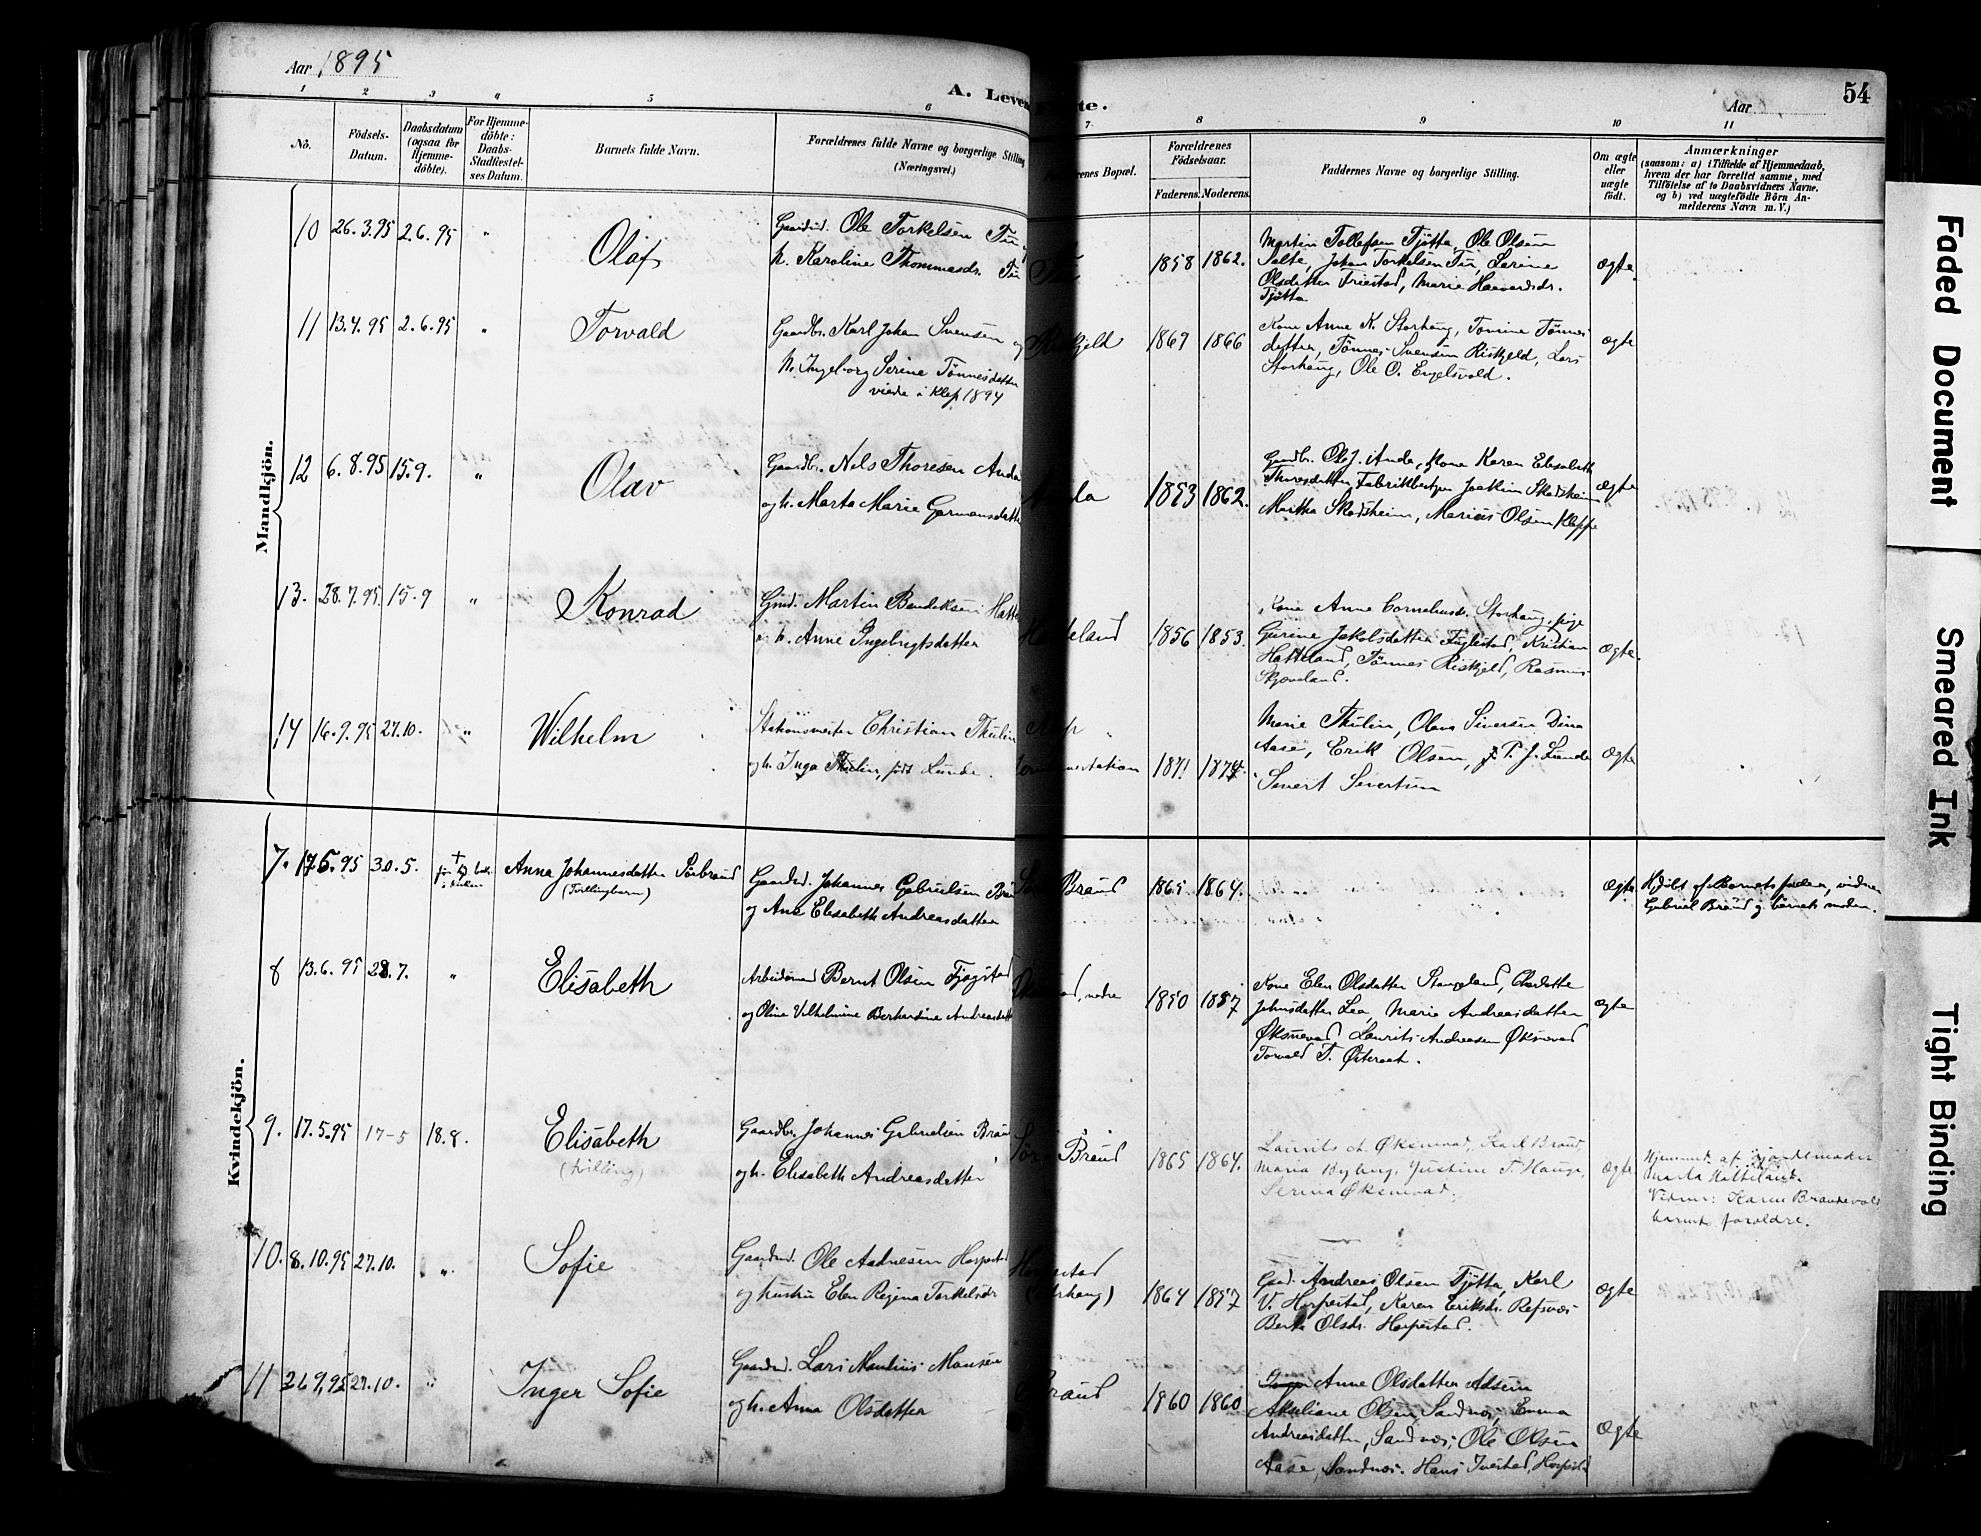 Aar 1895
A. Levende
te.
Aar
54
1 2 3 4 5 6 7 8 9 10 11
No.
Födsels-Datum.
Daabsdatum (ogsaa for Hjemme-döbte).
For Hjemme-döbte: Daabs-Stadfæstel-ses Datum.
Barnets fulde Navn.
Forældrenes fulde Navne og borgerlige Stilling (Næringsvei.)
renes Bopæl.
Forældrenes Födselsaar.
Faderens. Moderens.
Faddernes Navne og borgerlige Stilling.
Om ægte eller uægte födt.
Anmærkninger
(saasom: a) i Tilfælde af Hjemmedaab,
hvem der har forrettet samme, med
Tilföielse af to Daabsvidners Navne.
og b) ved uægtefödte Börn An-
melderens Navn m. V.)
Mandkjön.
10 26.3.95 2.6.95 " Olaf
Gaardbr. Ole Torkelsen Tu
h. Karoline Thommasdr. Tu
1858 1862.
Martin Tollefsen Tjötta, Ole Olsen
Salte, Johan Torkelsen Tu, Serine
Olsdatter Friestad, Marie Haavardsdr.
Tjötta
ægte.
11 13.4.95 2.6.95 " Torvald
Gaardbr. Karl Johan Svensen og
h. Ingeborg Serine Tönnesdatter
viede i Klep 1894
Riskjeld
1867 1866
Kone Anne K. Storhaug, Tomine Tönnes
datter, Tönnes Svensen Riskjeld, Lars
Storhaug, Ole O. Engelsvold.
ægte
12 6.8.95 15.9. " Olav
Gaardbr. Nels Thoresen Anda
og h. Marta Marie Gormansdatter
Anda
1853 1862.
Gaardbr. Ole J. Anda, Kone Karen Elesabeth
Thoresdatter, Fabrikbestyrer Joakim Skadsheim
Martha Skadsheim, Marius Olsen Kleppe
ægte
13. 28.7.95. 15.9 " Konrad
Gmd. Martin Bendeksen Hatte
og h. Anne Ingebrigtsdatter
Hatteland
1856 1853.
Kone Anne Corneliusdr. Storhaug, pige
Gurine Jakobsdatter Fuglestad, Kristian
Hatteland, Tönnes Riskjeld, Rasmus
Skjæveland.
ægte.
14 16.9.95 27.10. " Wilhelm
Stationsmester Christian Thulin
og h. Inga Thulin, född Lunde.
Klep
station
1871 1874
Marie Thulin, Olava Siversen Dina
Aase, Erik Olsen, P. J. Lunde
Sivert Sivertsen
ægte
Kvindekjön.
7. 17.5.95 30.5.
Anna Johannesdatter Sörbraud
(Tvillingbarn)
Gaardbr. Johannes Gabrielsen Brau
og Ane Elisabeth Andreasdatter
Braud
1865 1864.
ægte
Hjdöbt af Barnets fader, vidner
Gabriel Braud og barnets moder.
8 13.6.95 28.7. " Elisabeth
Arbeidsmd Bernt Olsen Fjogstad
og Oline Vilhelmine Berhardine Andreasdatt
nedre
1850 1857
Kone Elen Olsdatter Stangeland, Charlotte
Johnsdatter Lea, Marie Andreasdatter
Øksnevad Laurits Andreasen Øksnevad
Torvald T. Østraat.
ægte
9. 17.5.95 17-5 18.8. Elisabeth
(tvilling)
Gaardbr. Johannes Gabrielsen Brau
og h. Elisabeth Andreasdatter
Söre Braud
1865 1864.
Laurits A. Øksnevad, Karl Braud,
Maria Nyberg, Justine T. Hauge,
Serina Øksnevad.
ægte
Hjemmed. af jordemoder
Marta Hatteland.
Vidner: Karen Brandevold
barnets foraldre.
10. 8.10.95 27.10. " Sofie
Gaardbr. Ole Aadnesen Horpestad
og hustru Elen Regina Torkelsdr
Horpestad
1864 1857
Gaard. Andreas Olsen Tjötta, Karl
V. Horpestad, Karen Eriksdr. Refsnæs
Berta Olsdr. Horpestad.
ægte
11 26.9.95 27.10. " Inger Sofie
Gaardbr. Lars Mauritius Monsen
og h. Anna Olsdatter
Braud
1860 1860
Anne Olsdatter Adsem
Akseliane Olsen, Sandnæs, Emma
Andreasdatter, Sandnæs, Ole Olsen
Aase, Sandnæs. Hans Ivestad, Horpest
ægte
Faded Document
Smeared Ink
Tight Binding